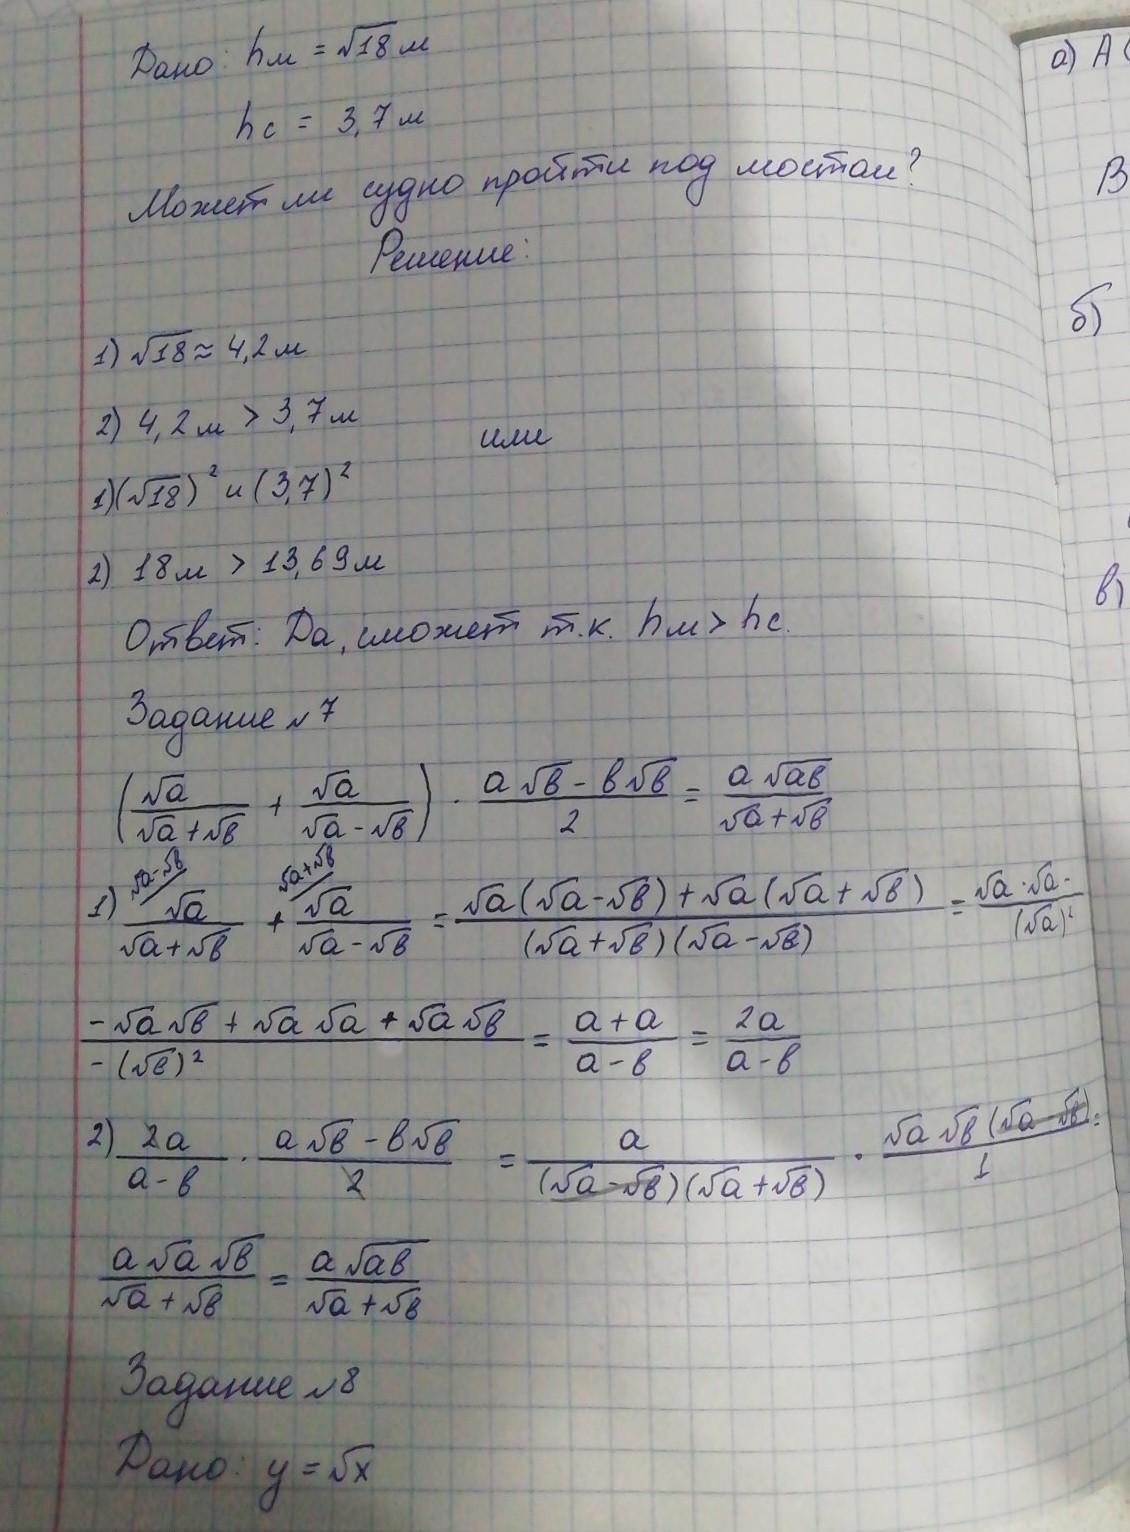 Дано: hм = √18 м
hс = 3,7 м
Может ли судно пройти под мостом?
Решение:
1) √18 ≈ 4,2 м
2) 4,2 м > 3,7 м
или
1) (√18)² и (3,7)²
2) 18 м > 13,69 м
Ответ: Да, сможет т.к. hм > hс.
Задание №7
(√a/(√a+√в) + √a/(√a-√в)) · (a√в - в√в)/2 = a√aв/(√a+√в)
√a-√в √a+√в
1) √a/(√a+√в) + √a/(√a-√в) = (√a(√a-√в)+√a(√a+√в))/((√a+√в)(√a-√в)) = √a·√a-/(√a)²
(-√a√в+√a√a+√a√в)/(-(√в)²) = (a+a)/(a-в) = 2a/(a-в)
2) 2a/(a-в) · (a√в-в√в)/2 = a/((√a-√в)(√a+√в)) · √a√в(√a-√в)/1 =
a√a√в/(√a+√в) = a√aв/(√a+√в)
Задание №8
Дано: y = √x
а) А(
В
б)
в)